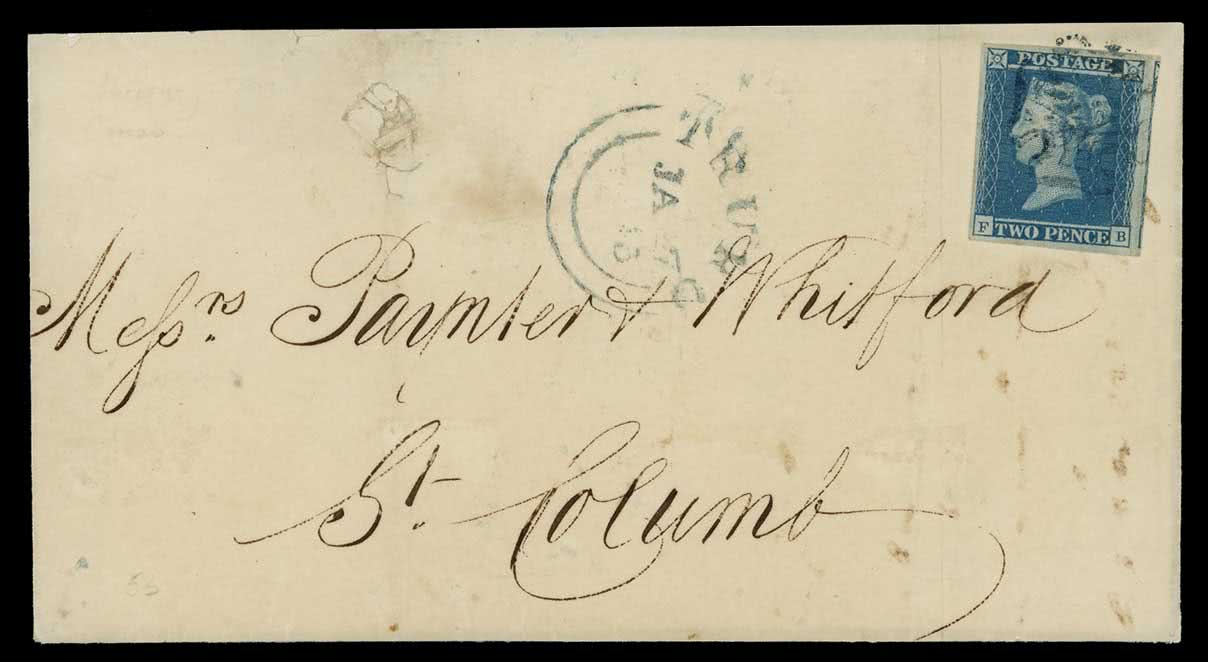 POSTAGE
F TWO PENCE B
TRURO
JA
Messrs. Paynter & Whitford
St. Columb